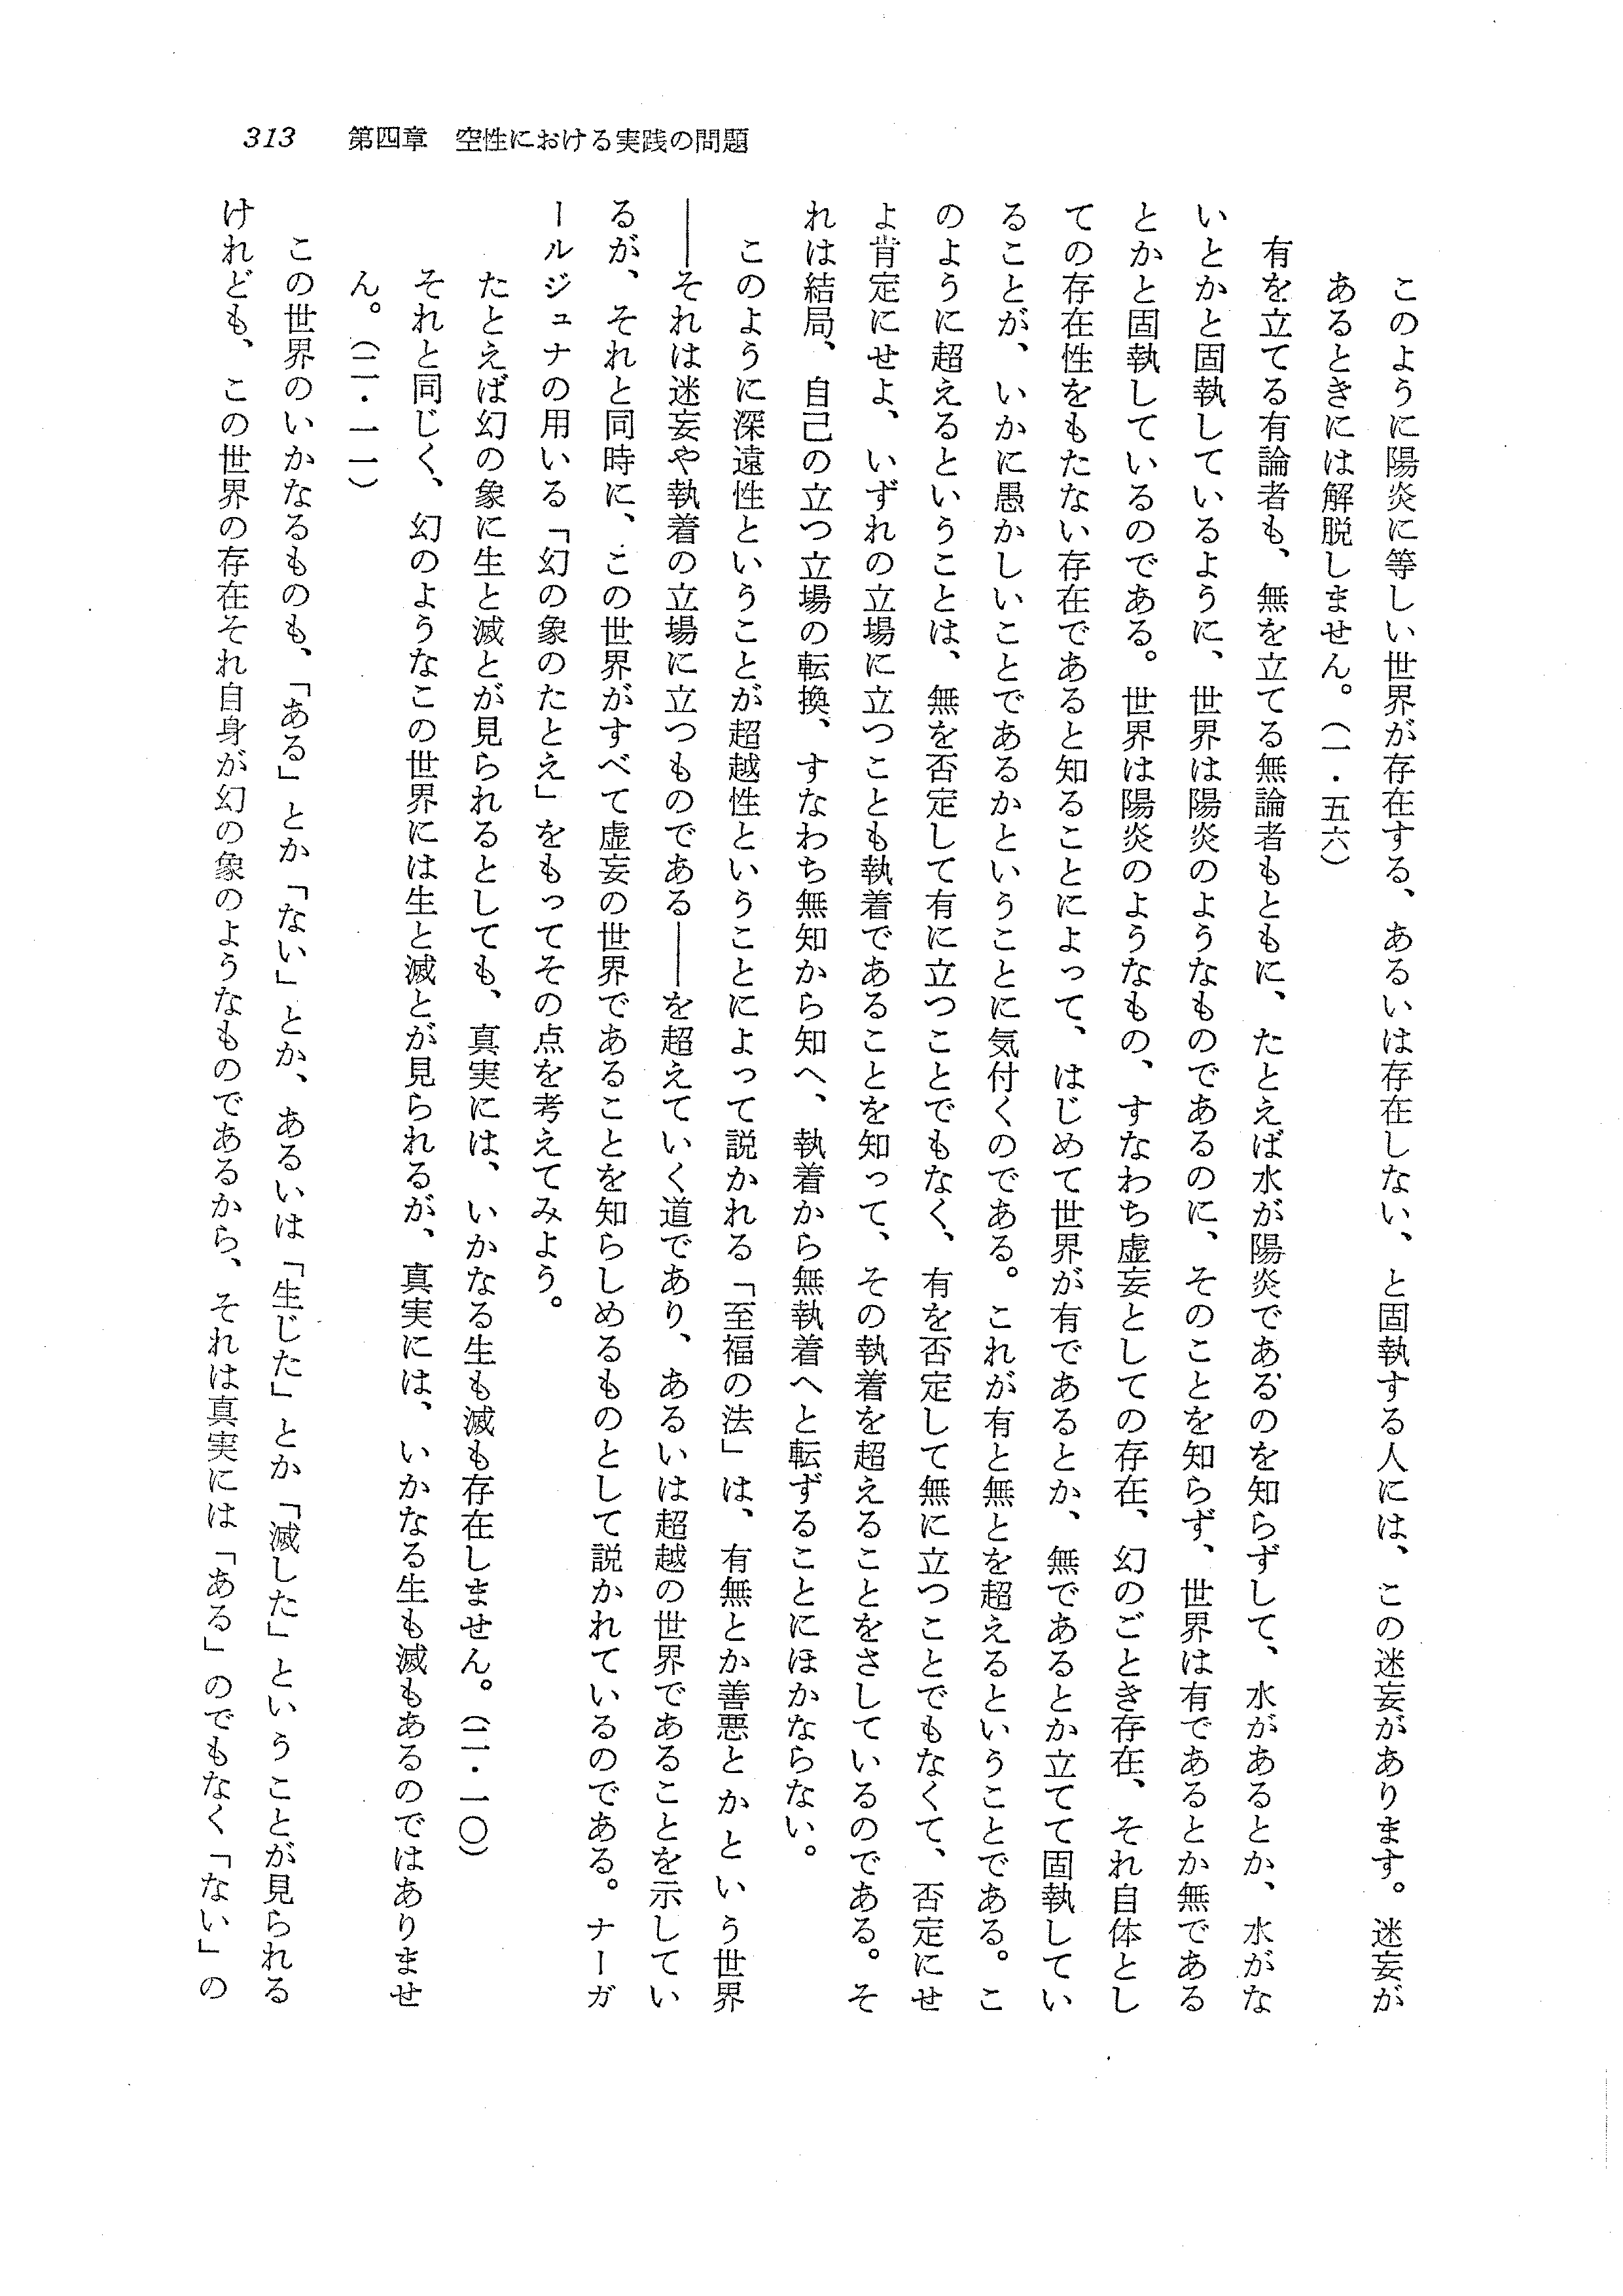 313　第四章　空性における実践の問題
このように陽炎に等しい世界が存在する、あるいは存在しない、と固執する人には、この迷妄があります。迷妄が
あるときには解脱しません。（一・五六）
有を立てる有論者も、無を立てる無論者もともに、たとえば水が陽炎であるのを知らずして、水があるとか、水がな
いとかと固執しているように、世界は陽炎のようなものであるのに、そのことを知らず、世界は有であるとか無である
とかと固執しているのである。世界は陽炎のようなもの、すなわち虚妄としての存在、幻のごとき存在、それ自体とし
ての存在性をもたない存在であると知ることによって、はじめて世界が有であるとか、無であるとか立てて固執してい
ることが、いかに愚かしいことであるかということに気付くのである。これが有と無とを超えるということである。こ
のように超えるということは、無を否定して有に立つことでもなく、有を否定して無に立つことでもなくて、否定にせ
よ肯定にせよ、いずれの立場に立つことも執着であることを知って、その執着を超えることをさしているのである。そ
れは結局、自己の立つ立場の転換、すなわち無知から知へ、執着から無執着へと転ずることにほかならない。
このように深遠性ということが超越性ということによって説かれる「至福の法」は、有無とか善悪とかという世界
――それは迷妄や執着の立場に立つものである――を超えていく道であり、あるいは超越の世界であることを示してい
るが、それと同時に、この世界がすべて虚妄の世界であることを知らしめるものとして説かれているのである。ナーガ
ールジュナの用いる「幻の象のたとえ」をもってその点を考えてみよう。
たとえば幻の象に生と滅とが見られるとしても、真実には、いかなる生も滅も存在しません。（二・一〇）
それと同じく、幻のようなこの世界には生と滅とが見られるが、真実には、いかなる生も滅もあるのではありませ
ん。（二・一一）
この世界のいかなるものも、「ある」とか「ない」とか、あるいは「生じた」とか「滅した」ということが見られる
けれども、この世界の存在それ自身が幻の象のようなものであるから、それは真実には「ある」のでもなく「ない」の